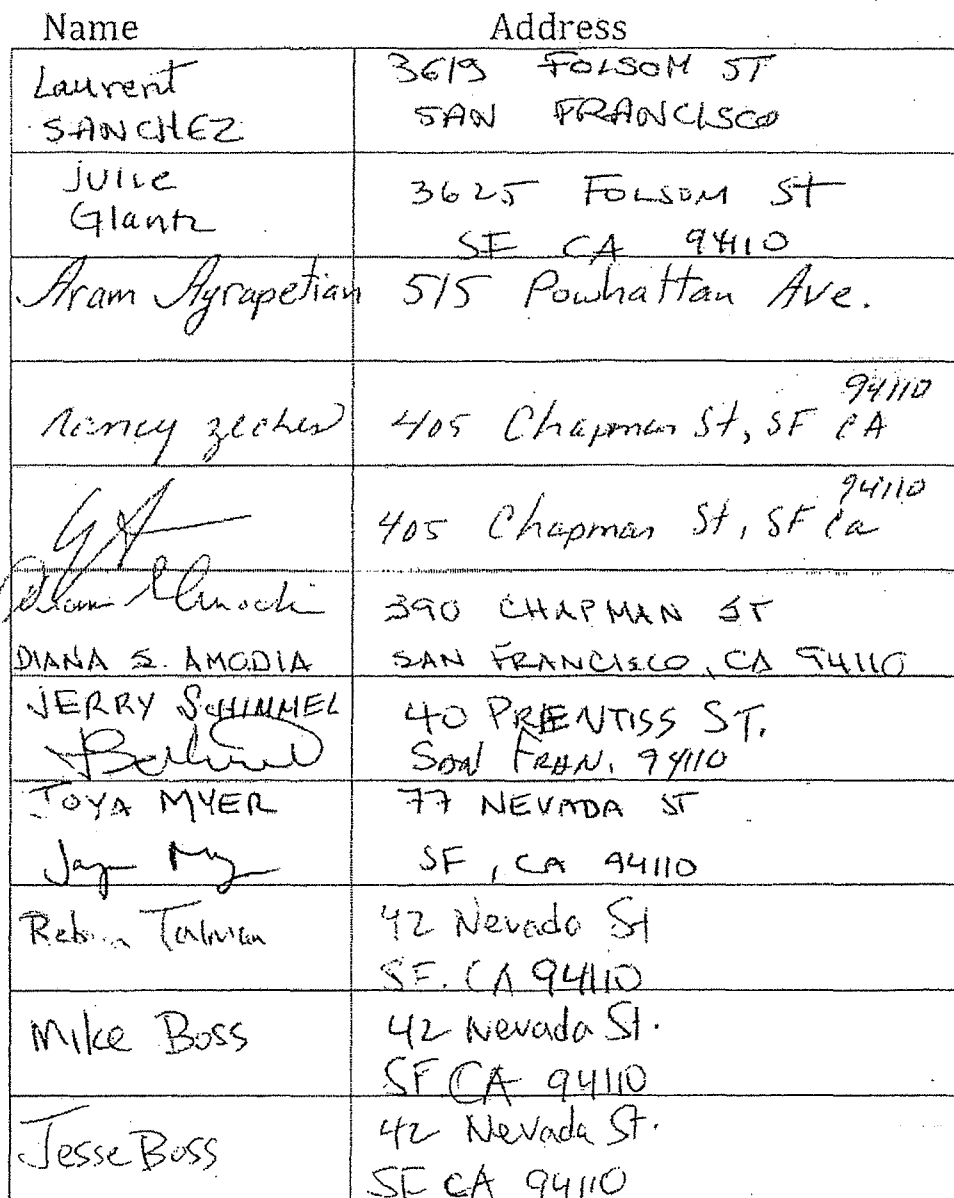 Name Address
Laurent 3619 FOLSOM ST
SANCHEZ SAN FRANCISCO
Julie 3625 FOLSOM St
Glantz SF CA 94110
Aram Ayrapetian 515 Powhattan Ave.
94110
nancy zecher 405 Chapman St, SF CA
94110
405 Chapman St, SF Ca
390 CHAPMAN ST
DIANA S. AMODIA SAN FRANCISCO, CA 94110
JERRY SCHIMMEL 40 PRENTISS ST.
SAN FRAN. 94110
JOYA MYER 77 NEVADA ST
SF, CA 94110
42 Nevada St
SF. CA 94110
Mike Boss 42 Nevada St.
SF CA 94110
Jesse Boss 42 Nevada St.
SF CA 94110